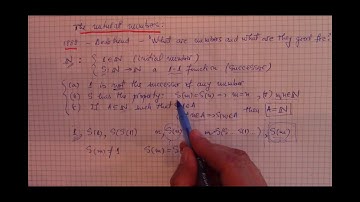 The natural numbers:
1888 - Dedekind - "What are numbers and what are they good for?"
ℕ : { 1 ∈ ℕ (initial number)
S: ℕ → ℕ a 1-1 function (successor)
(a) 1 is not the successor of any number
(b) S has the property: S(m)=S(n) => m=n, ∀ m,n∈ℕ
(c) If A⊆ℕ such that 1∈A
n∈A=>S(n)∈A then A=ℕ
1, S(1), S(S(1)) S(m)
S(m)≠1 S(m)=S(